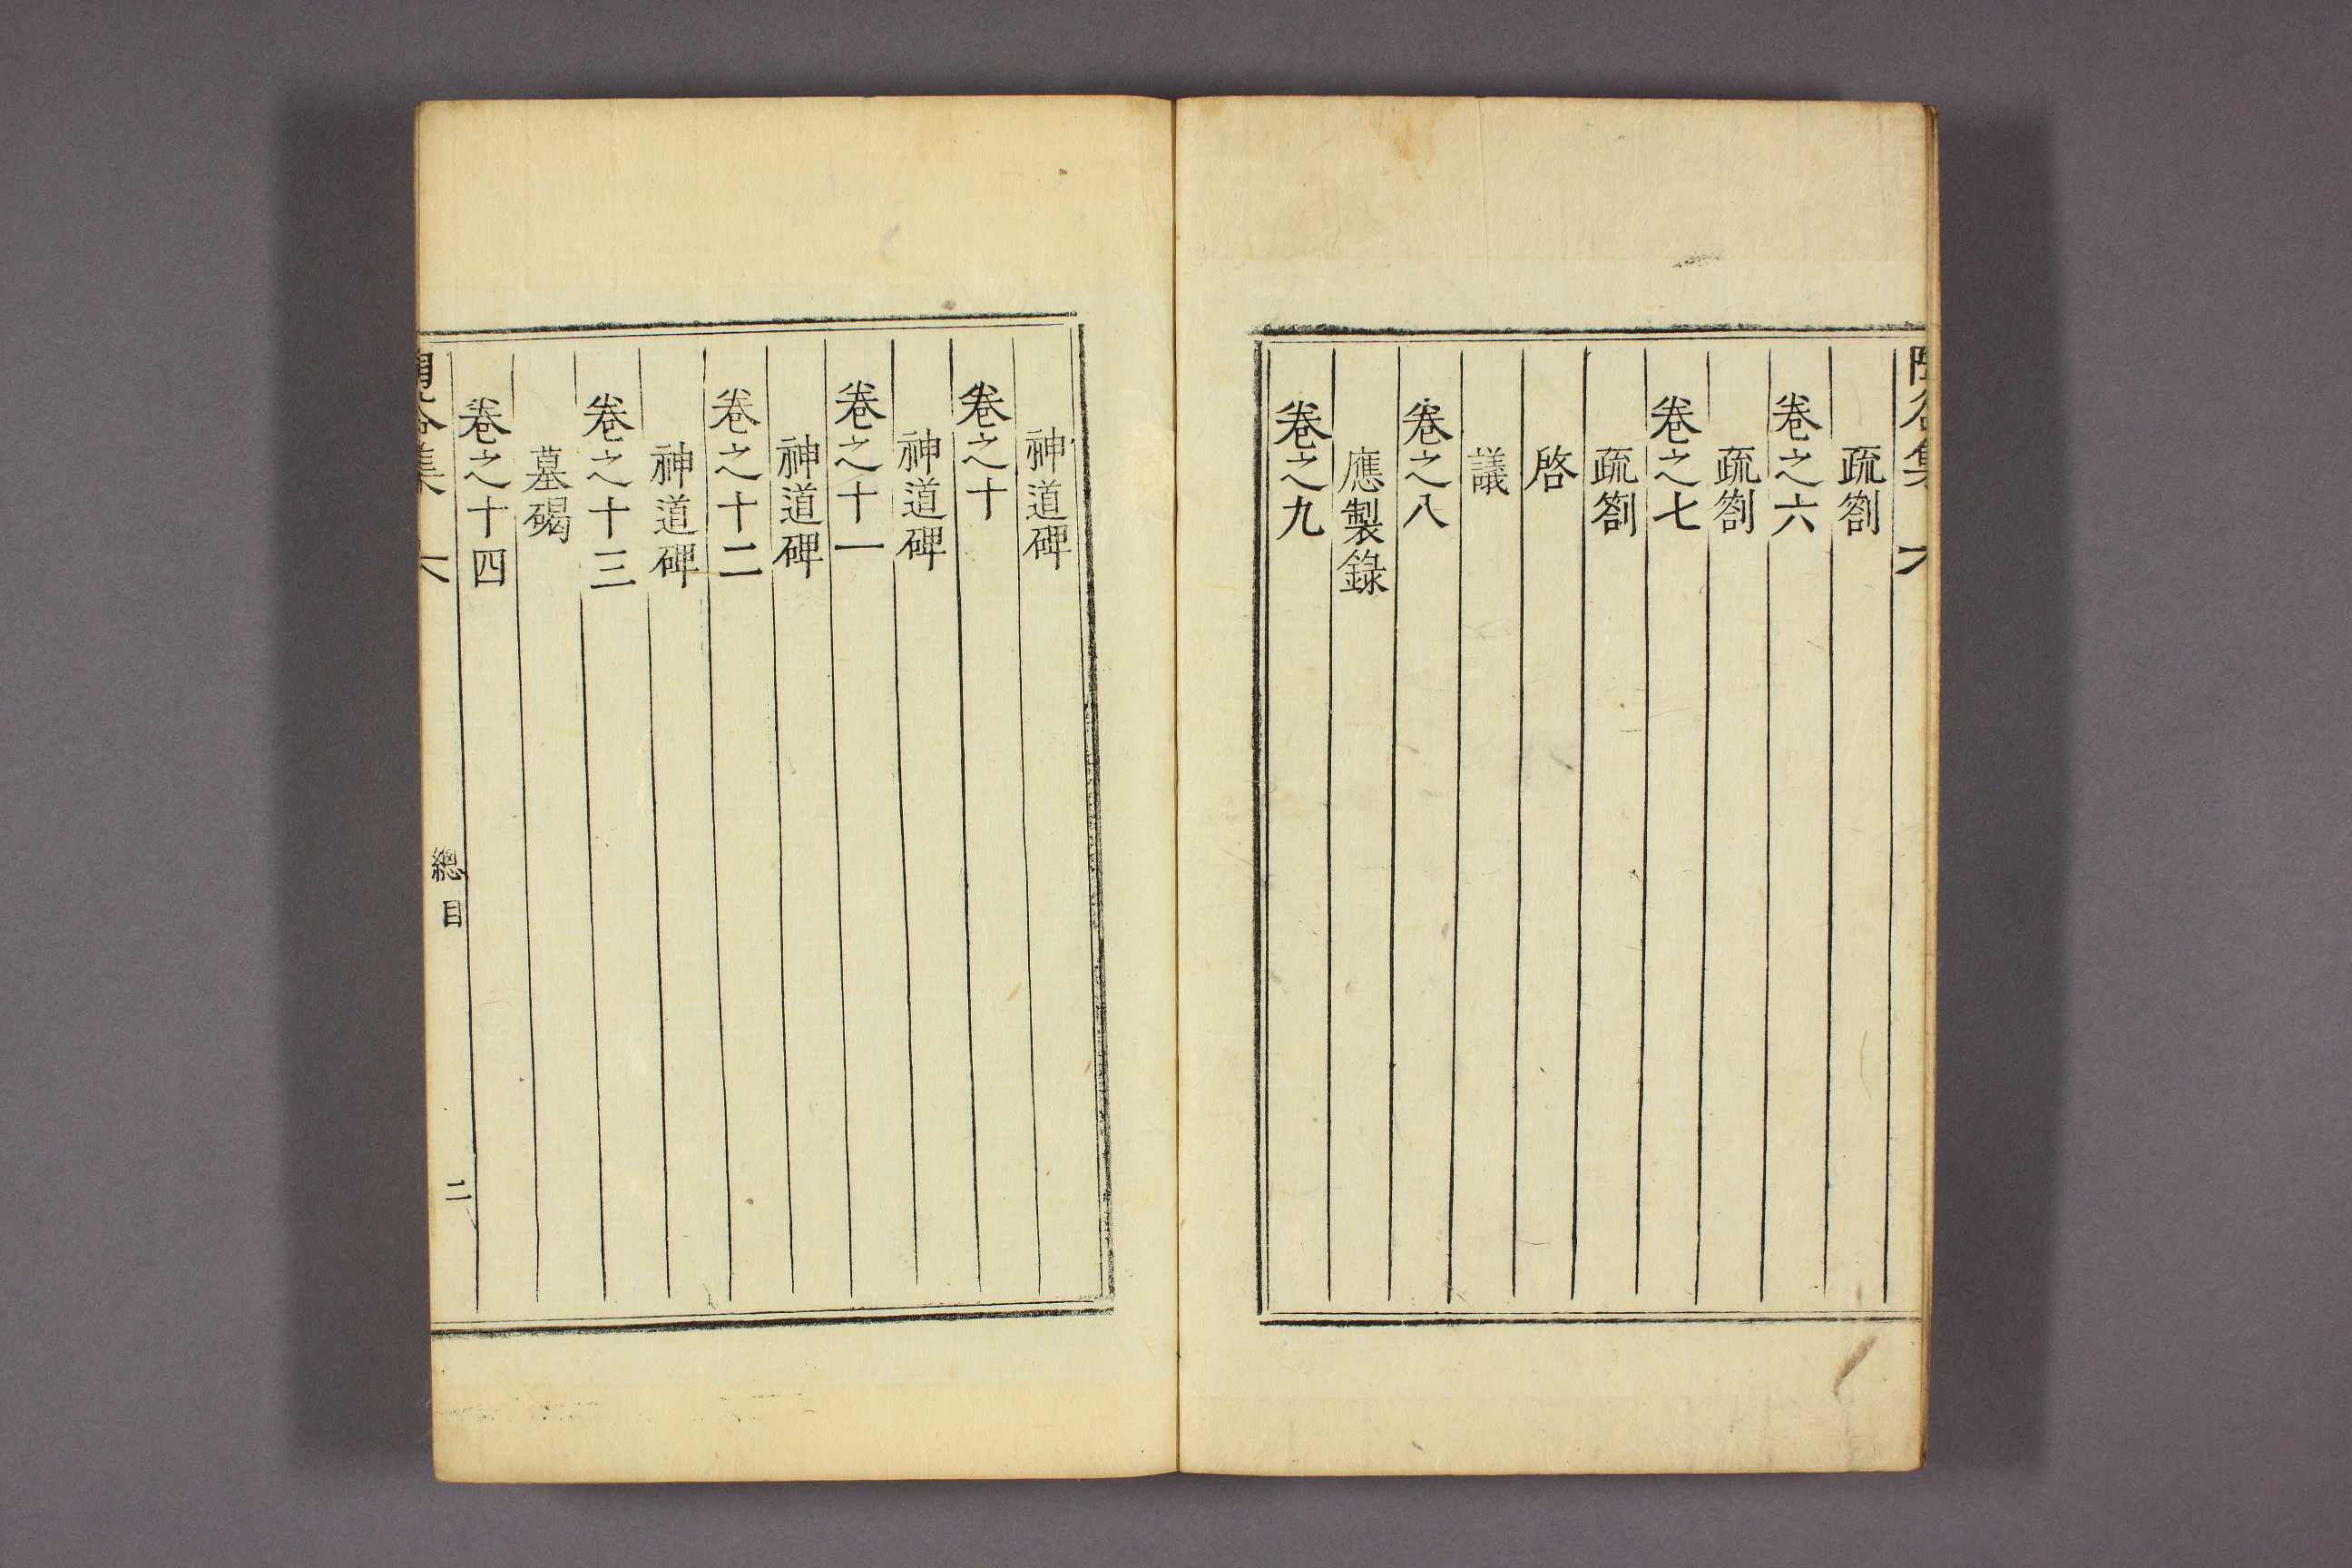 陶谷集
疏劄
卷之六
疏劄
卷之七
疏劄
啓
議
卷之八
應製錄
卷之九
神道碑
卷之十
神道碑
卷之十一
神道碑
卷之十二
神道碑
卷之十三
墓碣
卷之十四
陶谷集
總目
二